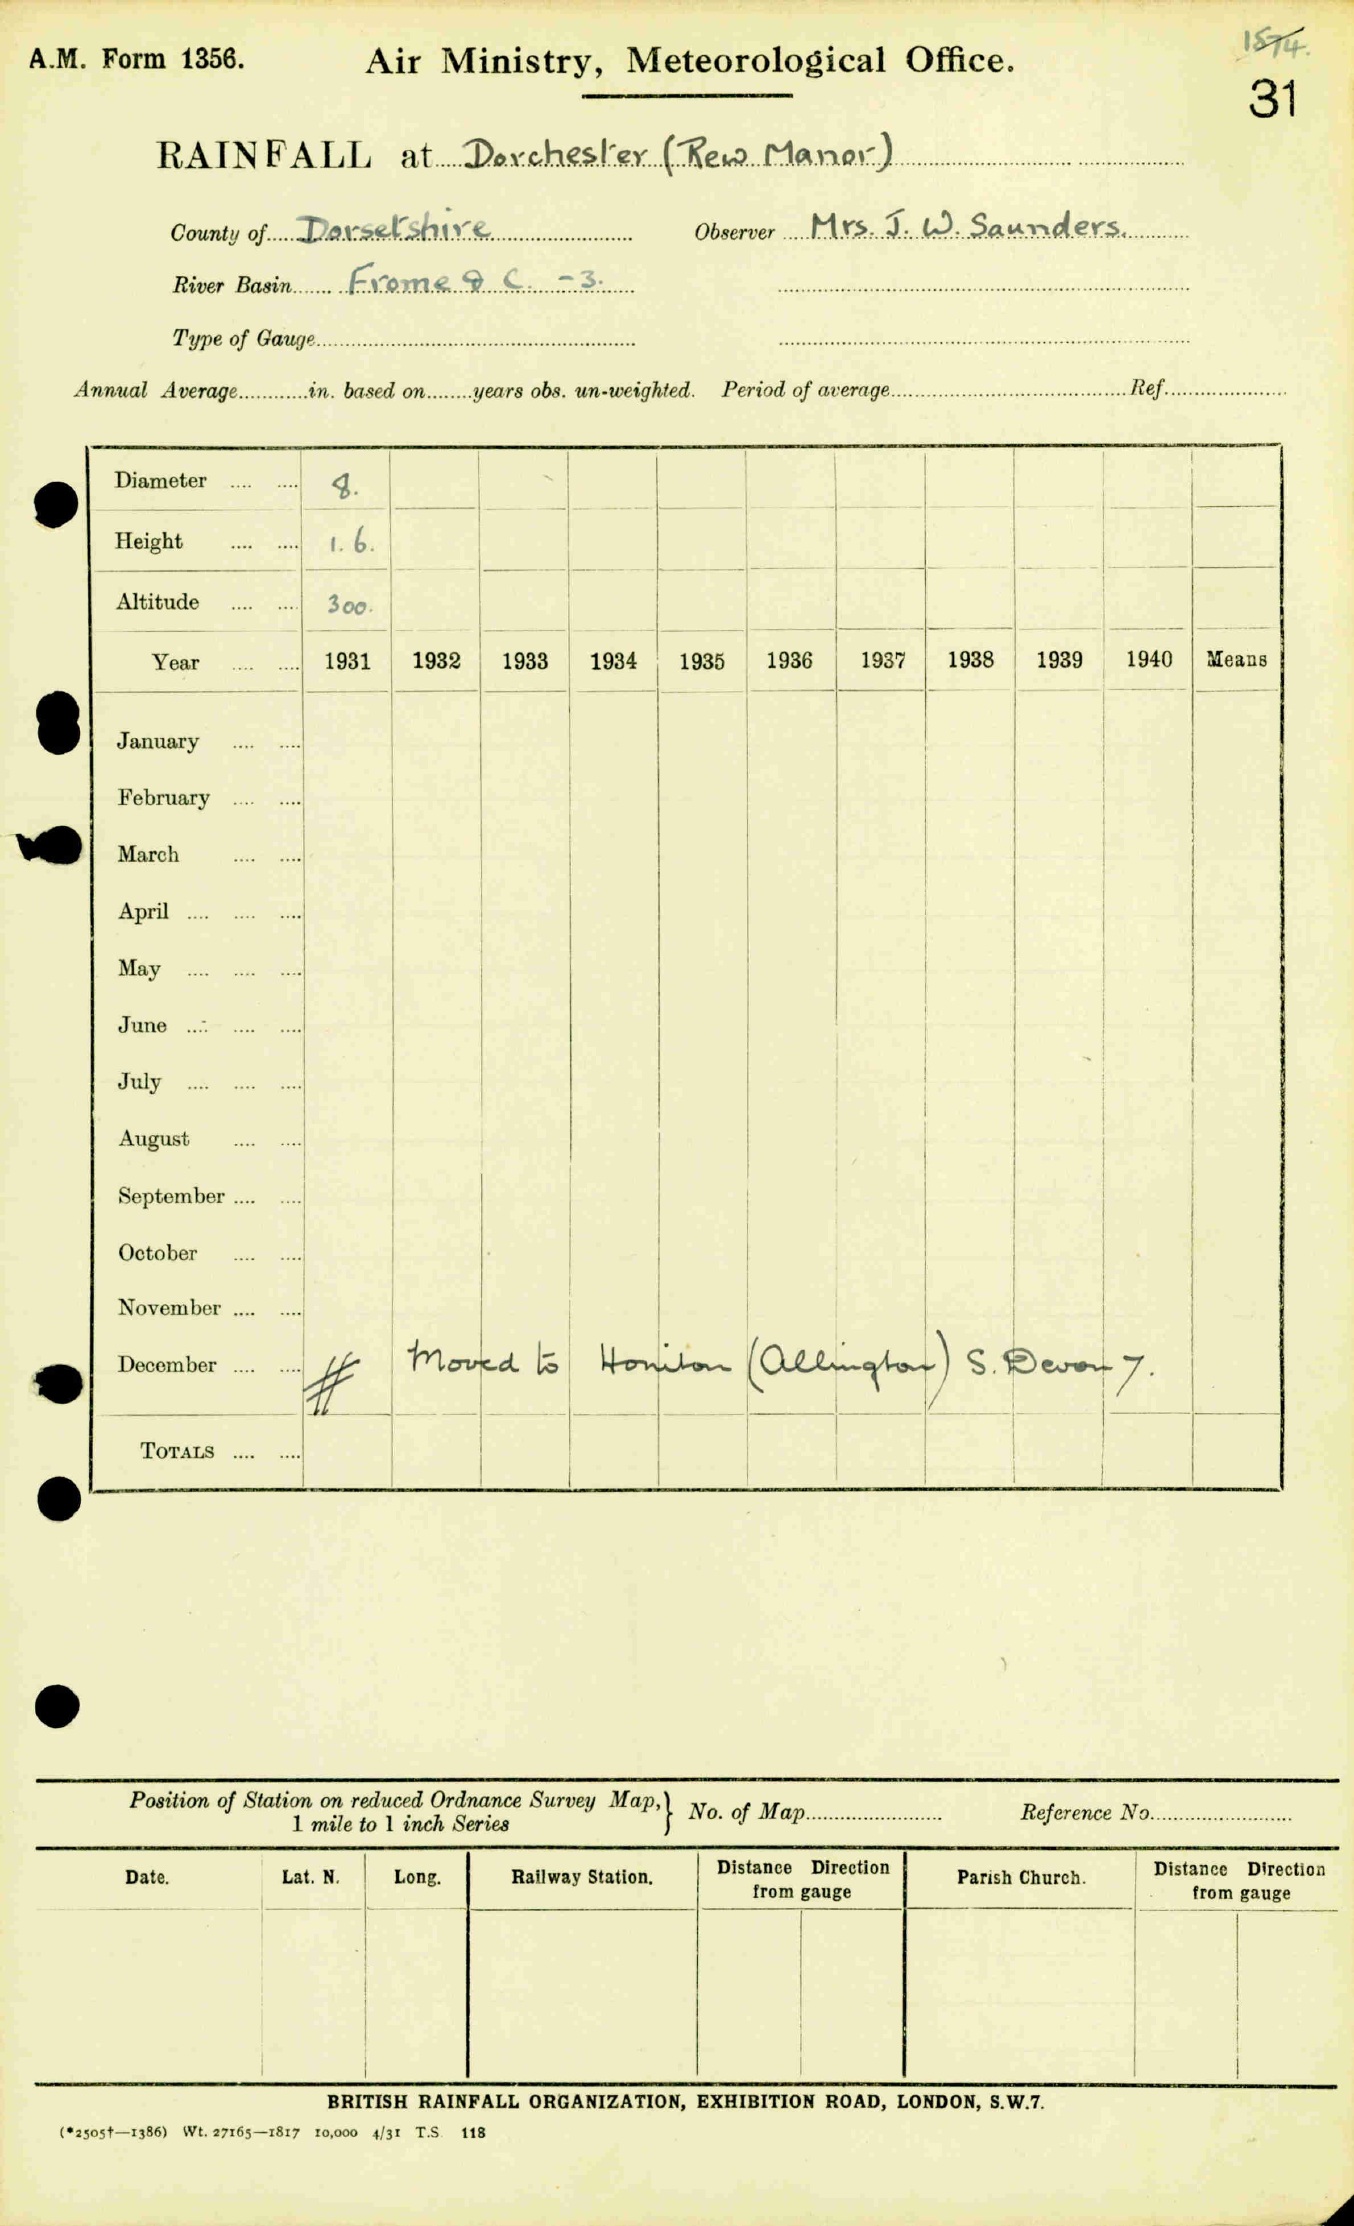 A.M. Form 1356.
Air Ministry, Meteorological Office.
1574.
31
RAINFALL at Dorchester (Rew Manor)
County of Dorsetshire Observer Mrs. J. W. Saunders.
River Basin Frome & C. -3.
Type of Gauge
Annual Average in. based on years obs. un-weighted. Period of average Ref.
Diameter 8.
Height 1. 6.
Altitude 300.
Year 1931 1932 1933 1934 1935 1936 1937 1938 1939 1940 Means
January
February
March
April
May
June
July
August
September
October
November
December Moved to Honiton (Allington) S. Devon 7.
TOTALS
Position of Station on reduced Ordnance Survey Map,} No. of Map Reference No.
1 mile to 1 inch Series
Date. Lat. N. Long. Railway Station. Distance Direction from gauge Parish Church. Distance Direction from gauge
BRITISH RAINFALL ORGANIZATION, EXHIBITION ROAD, LONDON, S.W.7.
(*2505†—1386) Wt. 27165—1817 10,000 4/31 T.S. 118